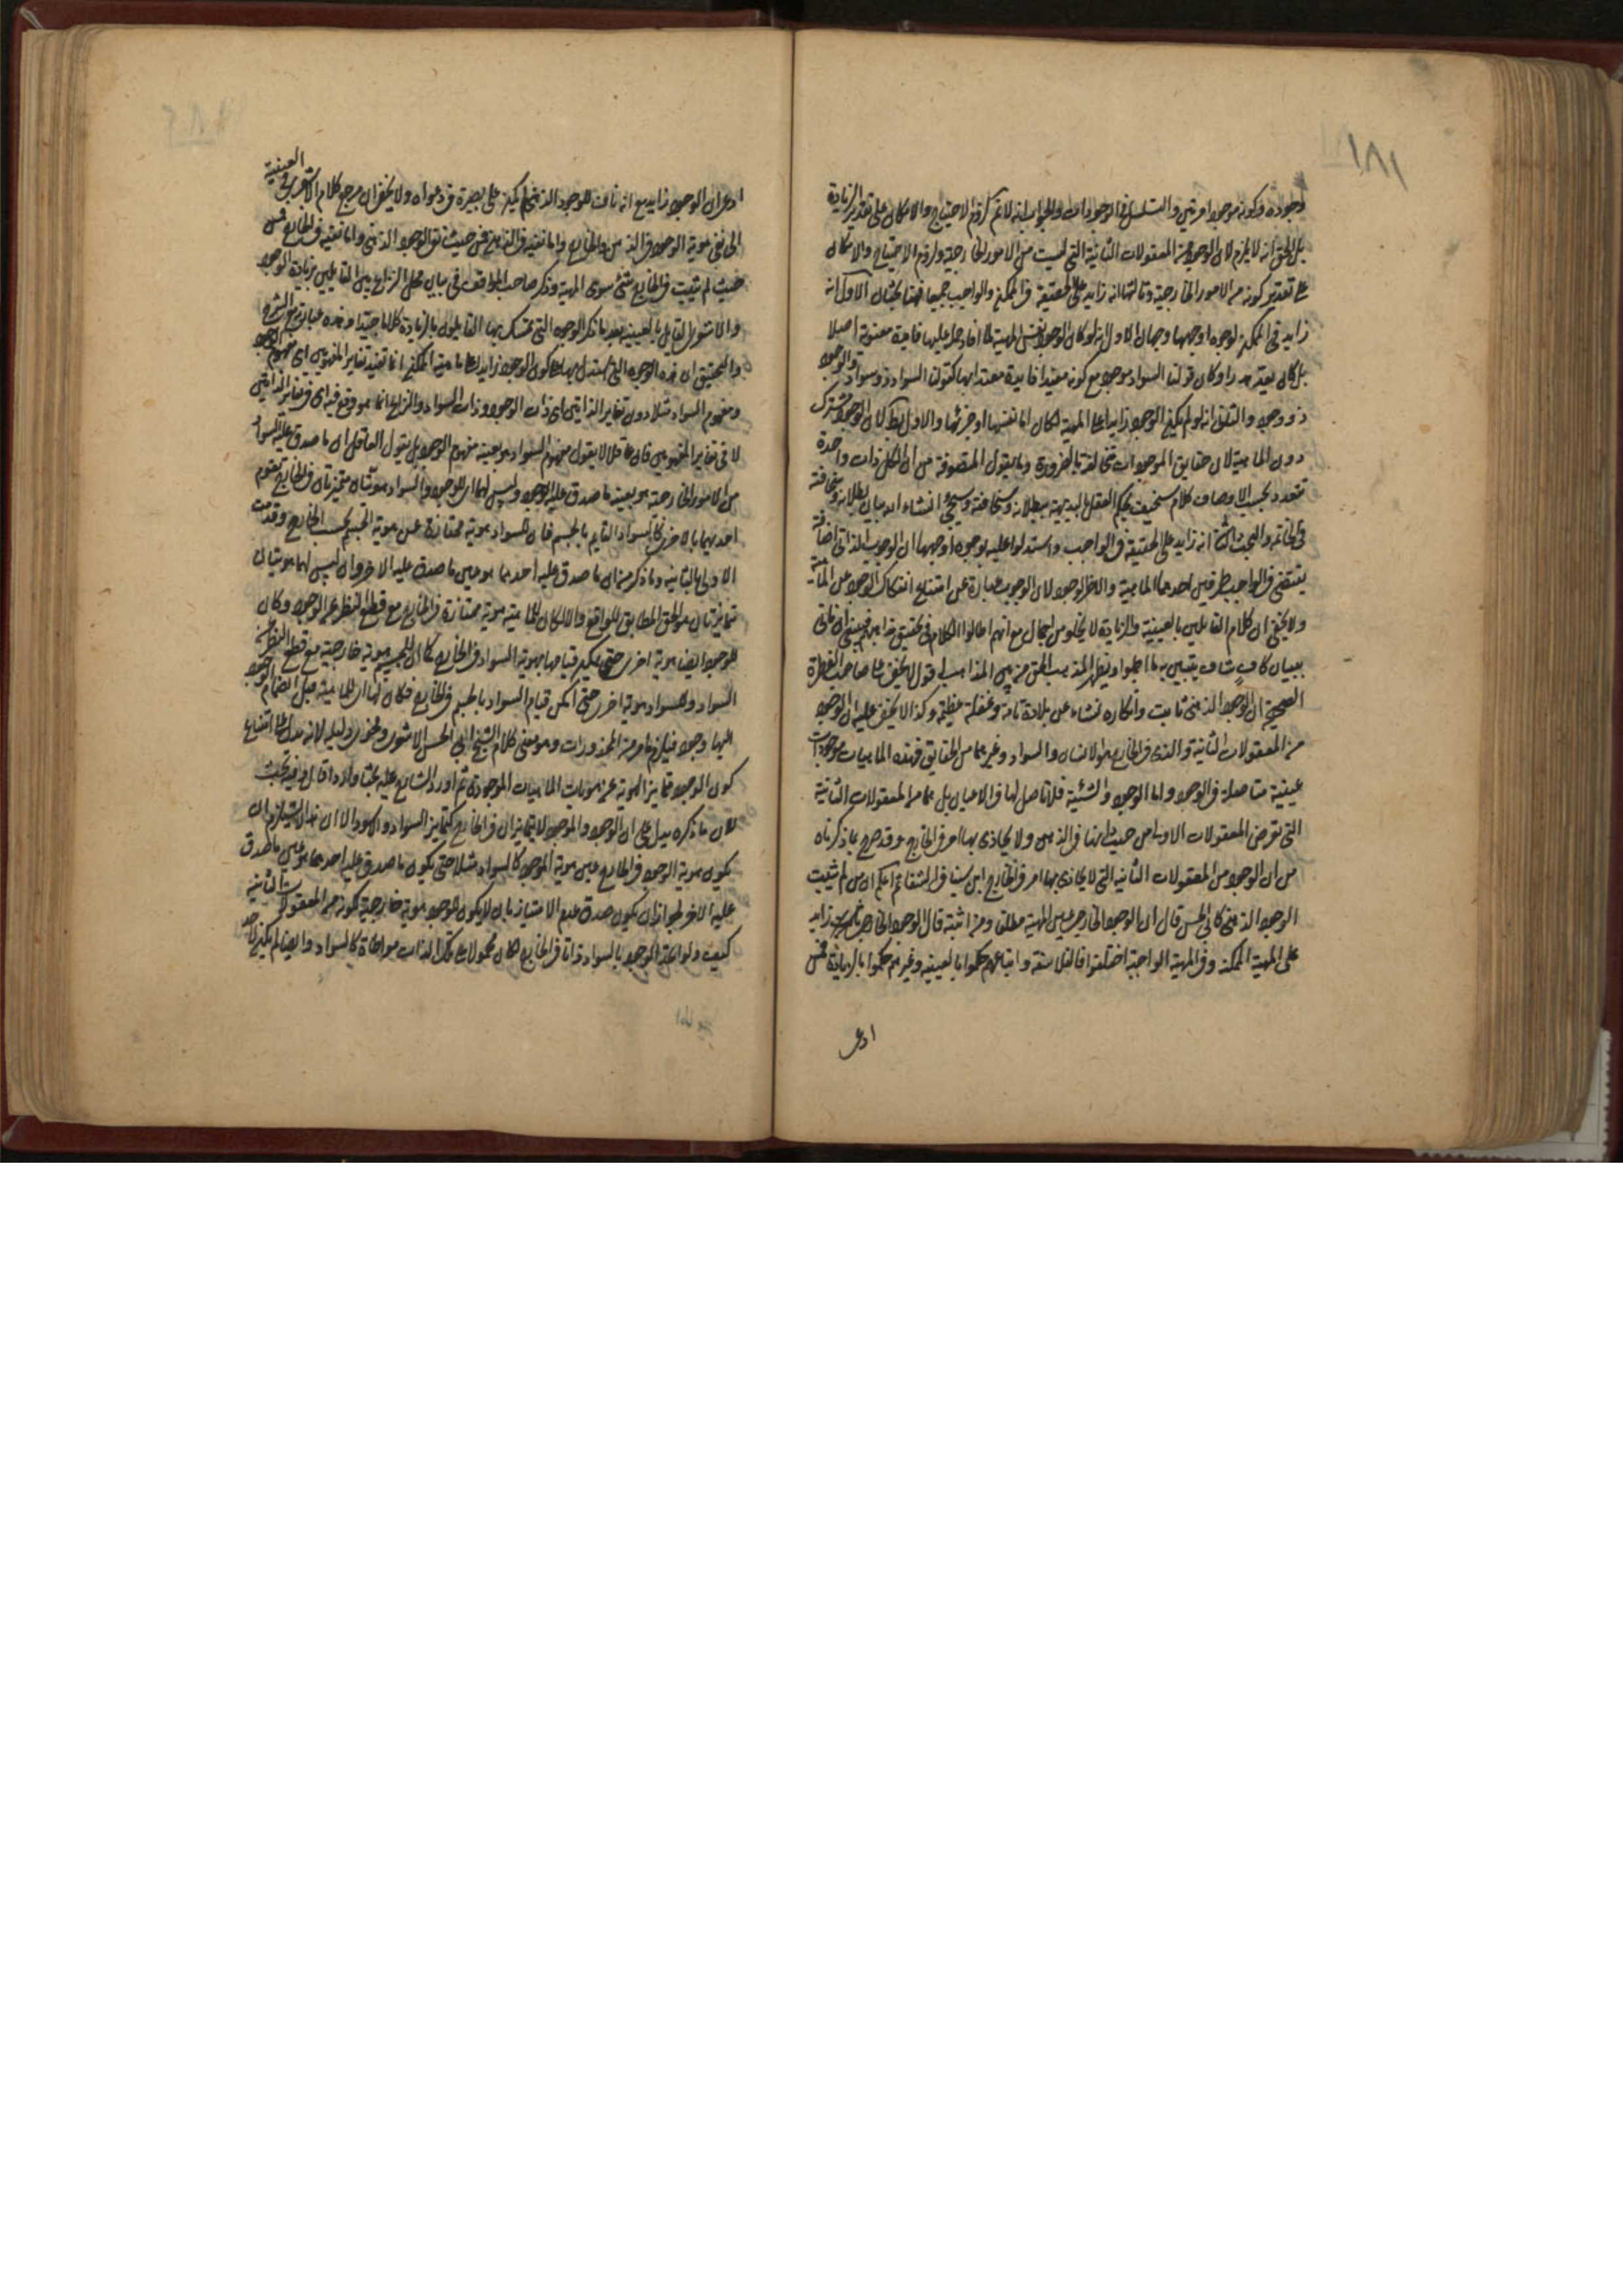 ١٨١
وجوده وكونه موجودا مرتين والتسلسل في الوجودات والجواب انه لا تم لزوم الاحتياج والامكان على تقدير الزيادة
بل الحق انه لا يلزم لان الوجود من المعقولات الثانية التي ليست من الامور الخارجية ولزوم الاحتياج والامكان
على تقدير كونه من الامور الخارجية وثالثها انه زايد على الحقيقة في الممكن والواجب جميعا فهنا بحثان الاول انه
زايد في الممكن لوجوه اوجهها وجهان الاول انه لو كان الوجود نفس المهية لما افاد حمله عليها فايدة معنوية اصلا
بل كان يعد هدرا وكان قولنا السواد موجود مع كونه مفيدا فايدة معتدا بها كقولنا السواد ذو سواد والوجود
ذو وجود والثاني انه لو لم يكن الوجود زايدا على المهية لكان اما نفسها او جزئها والاول بط لان الوجود مشترك
دون الماهية لان حقايق الموجودات متخالفة بالضرورة وما يقول المتصوفة من ان الكل ذات واحدة
تتعدد بحسب الاوصاف كلام سخيف يحكم العقل بالبديهة ببطلانه وسخافته وسيجئ انشاء الله بيان بطلانه وسخافته
في الخاتمة والبحث الثاني انه زايد على الحقيقة في الواجب واستدلوا عليه بوجوه اوجهها ان الوجوب الذاتي اضافة
يقتضي في الواجب طرفين احدهما الماهية والاخر الوجود لان الوجوب عبارة عن امتناع انفكاك الوجود عن الماهية
ولا يخفى ان كلام القايلين بالعينية والزيادة لا يخلو من اجمال مع انهم اطالوا الكلام في تحقيق مذاهبهم فينبغي ان ناتي
ببيان كاف شاف يتبين به ما اجملوا ويظهر المذهب الحق من بين المذاهب فاقول لا يخفى على صاحب الفطرة
الصحيحة ان الوجود الذهني ثابت وانكاره نشاء عن بلادة تامة وغفلة عظيمة وكذا لا يخفى عليه ان الوجود
من المعقولات الثانية والذي في الخارج هو الانسان والسواد وغيرهما من الحقايق فهذه الماهيات موجودات
عينية متاصلة في الوجود واما الوجود والشيئية فلا تاصل لها في الاعيان بل هما من المعقولات الثانية
التي تعرض المعقولات الاولى من حيث انها في الذهن ولا يحاذى بها امر في الخارج وقد صرح بما ذكرناه
من ان الوجود من المعقولات الثانية التي لا يحاذي بها امر في الخارج ابن سينا في الشفا ثم اعلم ان من لم يثبت
الوجود الذهني كابي الحسن قال ان الوجود الخارجي عين المهية مطلقا ومن اثبته قال الوجود الخارجي زايد
على المهية الممكنة وفي المهية الواجبة اختلفوا فالفلاسفة واتباعهم حكموا بالعينية وغيرهم حكموا بالزيادة فمن
ادعى
ادعى ان الوجود زايد مع انه ناف للوجود الذهني لم يكن على بصيرة في دعواه ولا يخفى ان مرجع كلام الاشعري في العينية
الى نفي هوية الوجود في الذهن والخارج واما نفيه في الذهن فمن حيث نفى الوجود الذهني واما نفيه في الخارج فمن
حيث لم يثبت في الخارج شئ سوى المهية وذكر صاحب المواقف في بيان محل النزاع بين القايلين بزيادة الوجود
والاشعري القايل بالعينية بعد ما ذكر الوجوه التي تمسك بها القايلون بالزيادة كلاما جيدا وهذه عبارته مع الشرح
والتحقيق ان هذه الوجوه التي يستدل بها على كون الوجود زايدا على ماهية الممكن انما تفيد تغاير المفهومين اي مفهوم الوجود
ومفهوم السواد مثلا دون تغاير الذاتين اي ذات الوجود وذات السواد والنزاع انما هو وقع فيه اي في تغاير الذاتين
لا في تغاير المفهومين فان عاقلا لا يقول مفهوم السواد هو بعينه مفهوم الوجود بل يقول العاقل ان ما صدق عليه السواد
من الامور الخارجة هو بعينه ما صدق عليه الوجود وليس لهما اي للوجود والسواد هويتان متميزتان في الخارج تقوم
احديهما بالاخرى كالسواد القايم بالجسم فان للسواد هوية ممتازة عن هوية الجسم بحسب الخارج وقد قامت
الاولى بالثانية وما ذكر من ان ما صدق عليه احدهما هو عين ما صدق عليه الاخر وان ليس لهما هويتان
تمايزتان هو الحق المطابق للواقع والا لكان للماهية هوية ممتازة في الخارج مع قطع النظر عن الوجود وكان
للوجود ايضا هوية اخرى حتى يمكن قيامها بهوية السواد في الخارج كما ان للجسم هوية خارجية مع قطع النظر عن
السواد وللسواد هوية اخرى حتى امكن قيام السواد بالجسم في الخارج فكان لها اي للماهية قبل انضمام الوجود
اليها وجود فيلزم ما مر من المحذورات وهو معنى كلام الشيخ ابي الحسن الاشعري وفحوى دليله لانه يدل على امتناع
كون الوجود تمايز الهوية عن هويات الماهيات الموجودة ثم اورد الشارح عليه بحثا واردا قال وفيه بحث
لان ما ذكره يدل على ان الوجود والموجود لا يتمايزان في الخارج كتمايز السواد والاسود الا ان هذا لا يستلزم ان
يكون هوية الوجود في الخارج عين هوية الموجود كالسواد مثلا حتى يكون ما صدق عليه احدهما هو عين ما صدق
عليه الاخر لجواز ان يكون صدق عدم الامتياز بان لا يكون للوجود هوية خارجية لكونه من المعقولات الثانية
كيف ولو اتحد الوجود بالسواد ذاتا في الخارج لكان محمولا على تلك الذات مواطاة كالسواد وايضا لم يكن لاحد